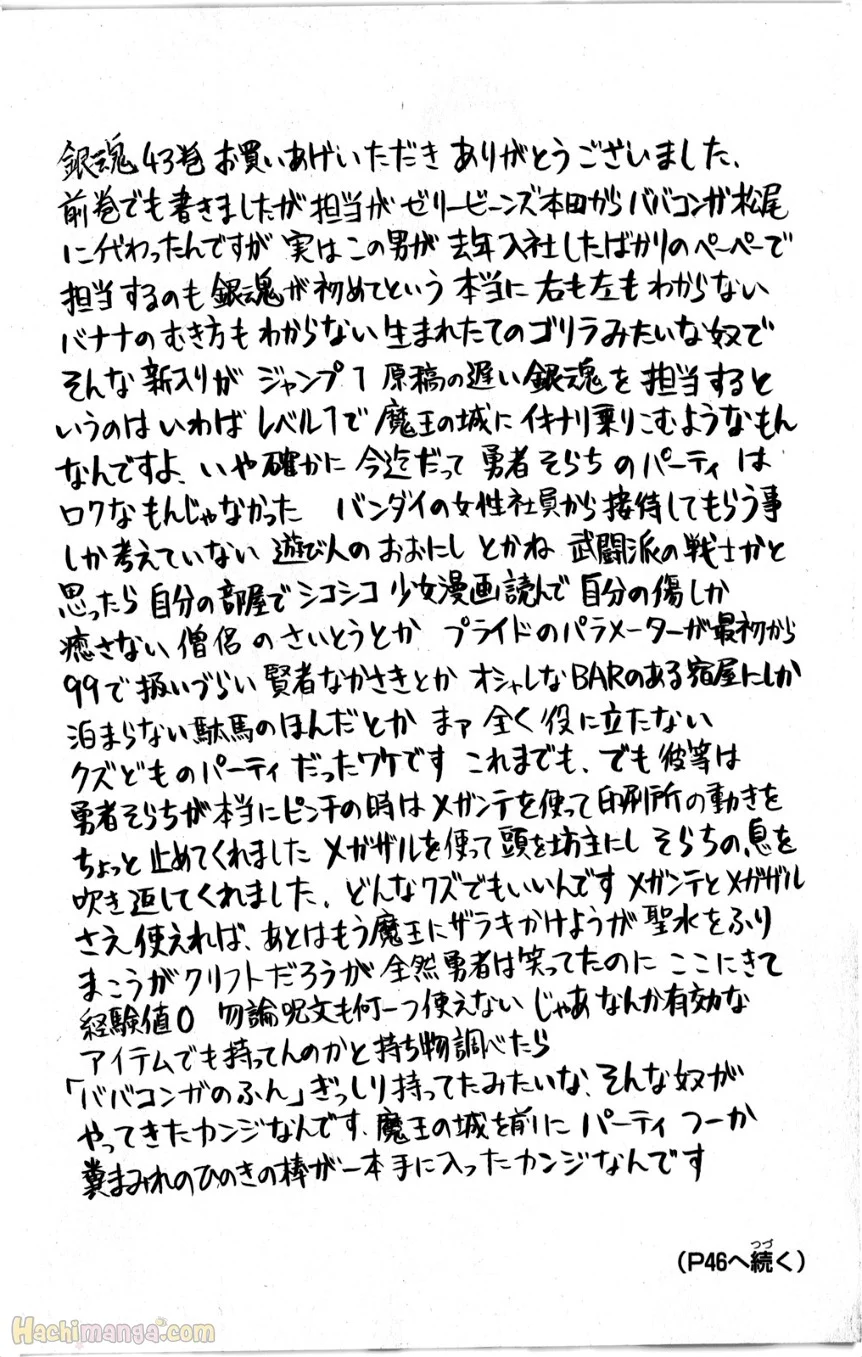 銀魂43巻 お買いあげいただき ありがとうございました、
前巻でも書きましたが 担当が ゼリービーンズ本田からババコンガ松尾
に代わったんですが 実はこの男が 去年入社したばかりのペーペーで
担当するのも銀魂が初めてという 本当に 右も左もわからない
バナナのむき方もわからない 生まれたてのゴリラみたいな奴で
そんな新入りが ジャンプ1 原稿の遅い銀魂を 担当すると
いうのは いわば レベル1で 魔王の城に イキナリ乗りこむようなもん
なんですよ、いや確かに 今迄だって 勇者そらちのパーティは
ロクなもんじゃなかった バンダイの女性社員から接待してもらう事
しか考えていない 遊び人のおおにしとかね 武闘派の戦士かと
思ったら自分の部屋でシコシコ少女漫画読んで 自分の傷しか
癒さない僧侶のさいとうとか プライドのパラメーターが最初から
99で扱いづらい賢者なかさきとか オシャレなBARのある宿屋にしか
泊まらない駄馬のほんだとか まァ 全く役に立たない
クズどものパーティだったワケです これまでも、でも彼等は
勇者そらちが本当にピンチの時はメガンテを使って印刷所の動きを
ちょっと止めてくれました メガザルを使って頭を坊主にし そらちの息を
吹き返してくれました、どんなクズでもいいんです メガンテとメガザル
さえ使えれば、あとはもう魔王にザラキかけようが聖水をふり
まこうがクリフトだろうが 全然勇者は笑ってたのに ここにきて
経験値0 勿論呪文も何一つ使えない じゃあなんか有効な
アイテムでも持ってんのかと持ち物調べたら
「ババコンガのふん」ぎっしり持ってたみたいな、そんな奴が
やってきたカンジなんです、魔王の城を前に パーティ つーか
糞まみれのひのきの棒が一本手に入ったカンジなんです
(P46へ続く)
つづ
Hachimanga.com